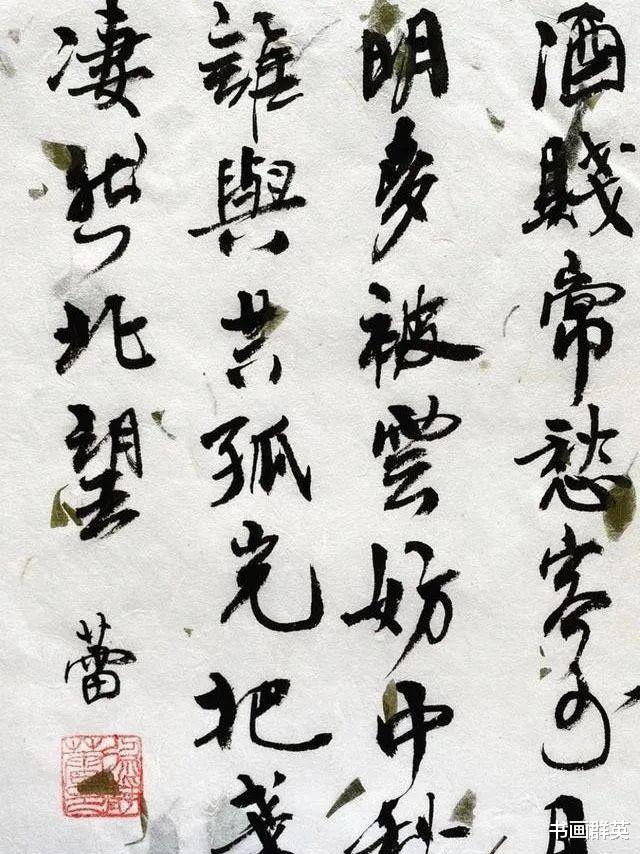 酒賤常愁客少月
明多被雲妨中秋
誰與共孤光把盞
凄然北望
蕾
书画群英